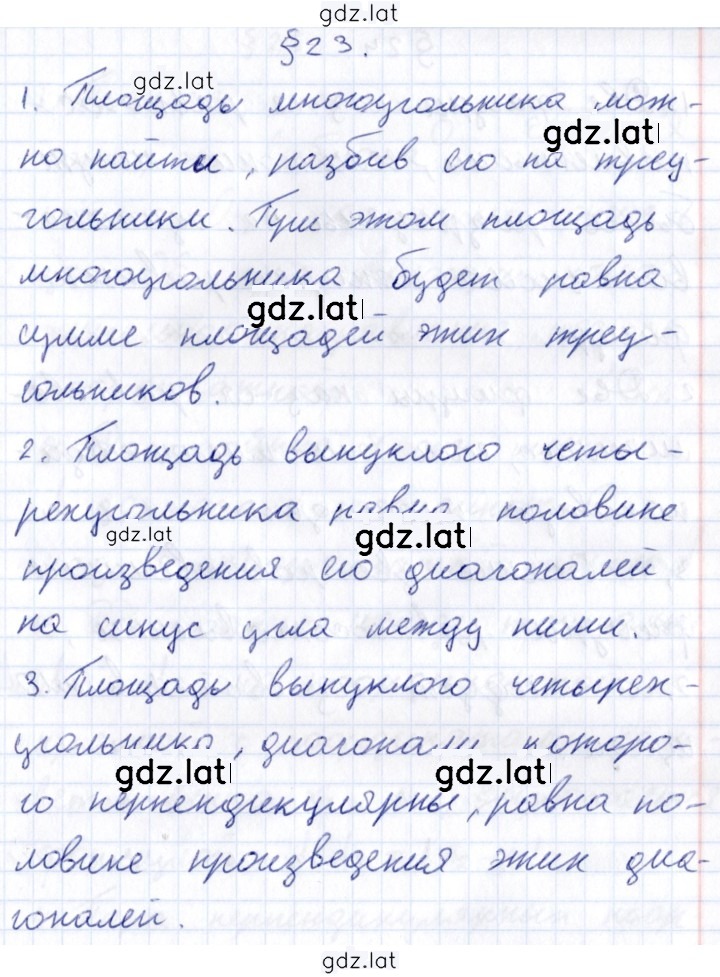 gdz.lat
§23.
gdz.lat
1. Площадь многоугольника мож-
gdz.lat
но найти, разбив его на треу-
гольники. При этом площадь
многоугольника будет равна
gdz.lat
сумме площадей этих треу-
гольников.
2. Площадь выпуклого четы-
рехугольника равна половине
gdz.lat
gdz.lat
произведения его диагоналей
на синус угла между ними.
3. Площадь выпуклого четырех-
угольника, диагонали которо-
gdz.lat
gdz.lat
го перпендикулярны, равна по-
ловине произведения этих диа-
гоналей.
gdz.lat